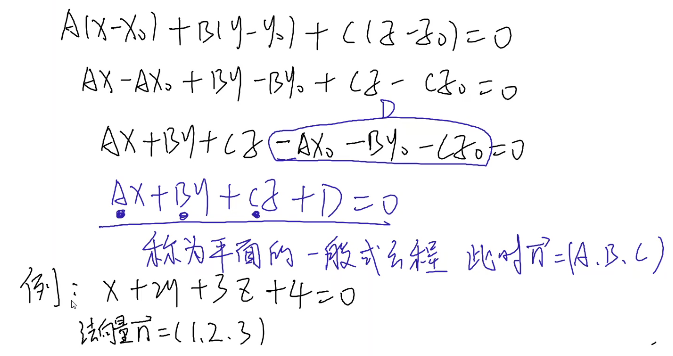 A(x-x₀)+B(y-y₀)+C(z-z₀)=0
Ax-Ax₀+By-By₀+Cz-Cz₀=0
D
Ax+By+Cz-Ax₀-By₀-Cz₀=0
Ax+By+Cz+D=0
称为平面的一般式方程 此时n⃗=(A.B.C)
例:x+2y+3z+4=0
法向量n⃗=(1.2.3)